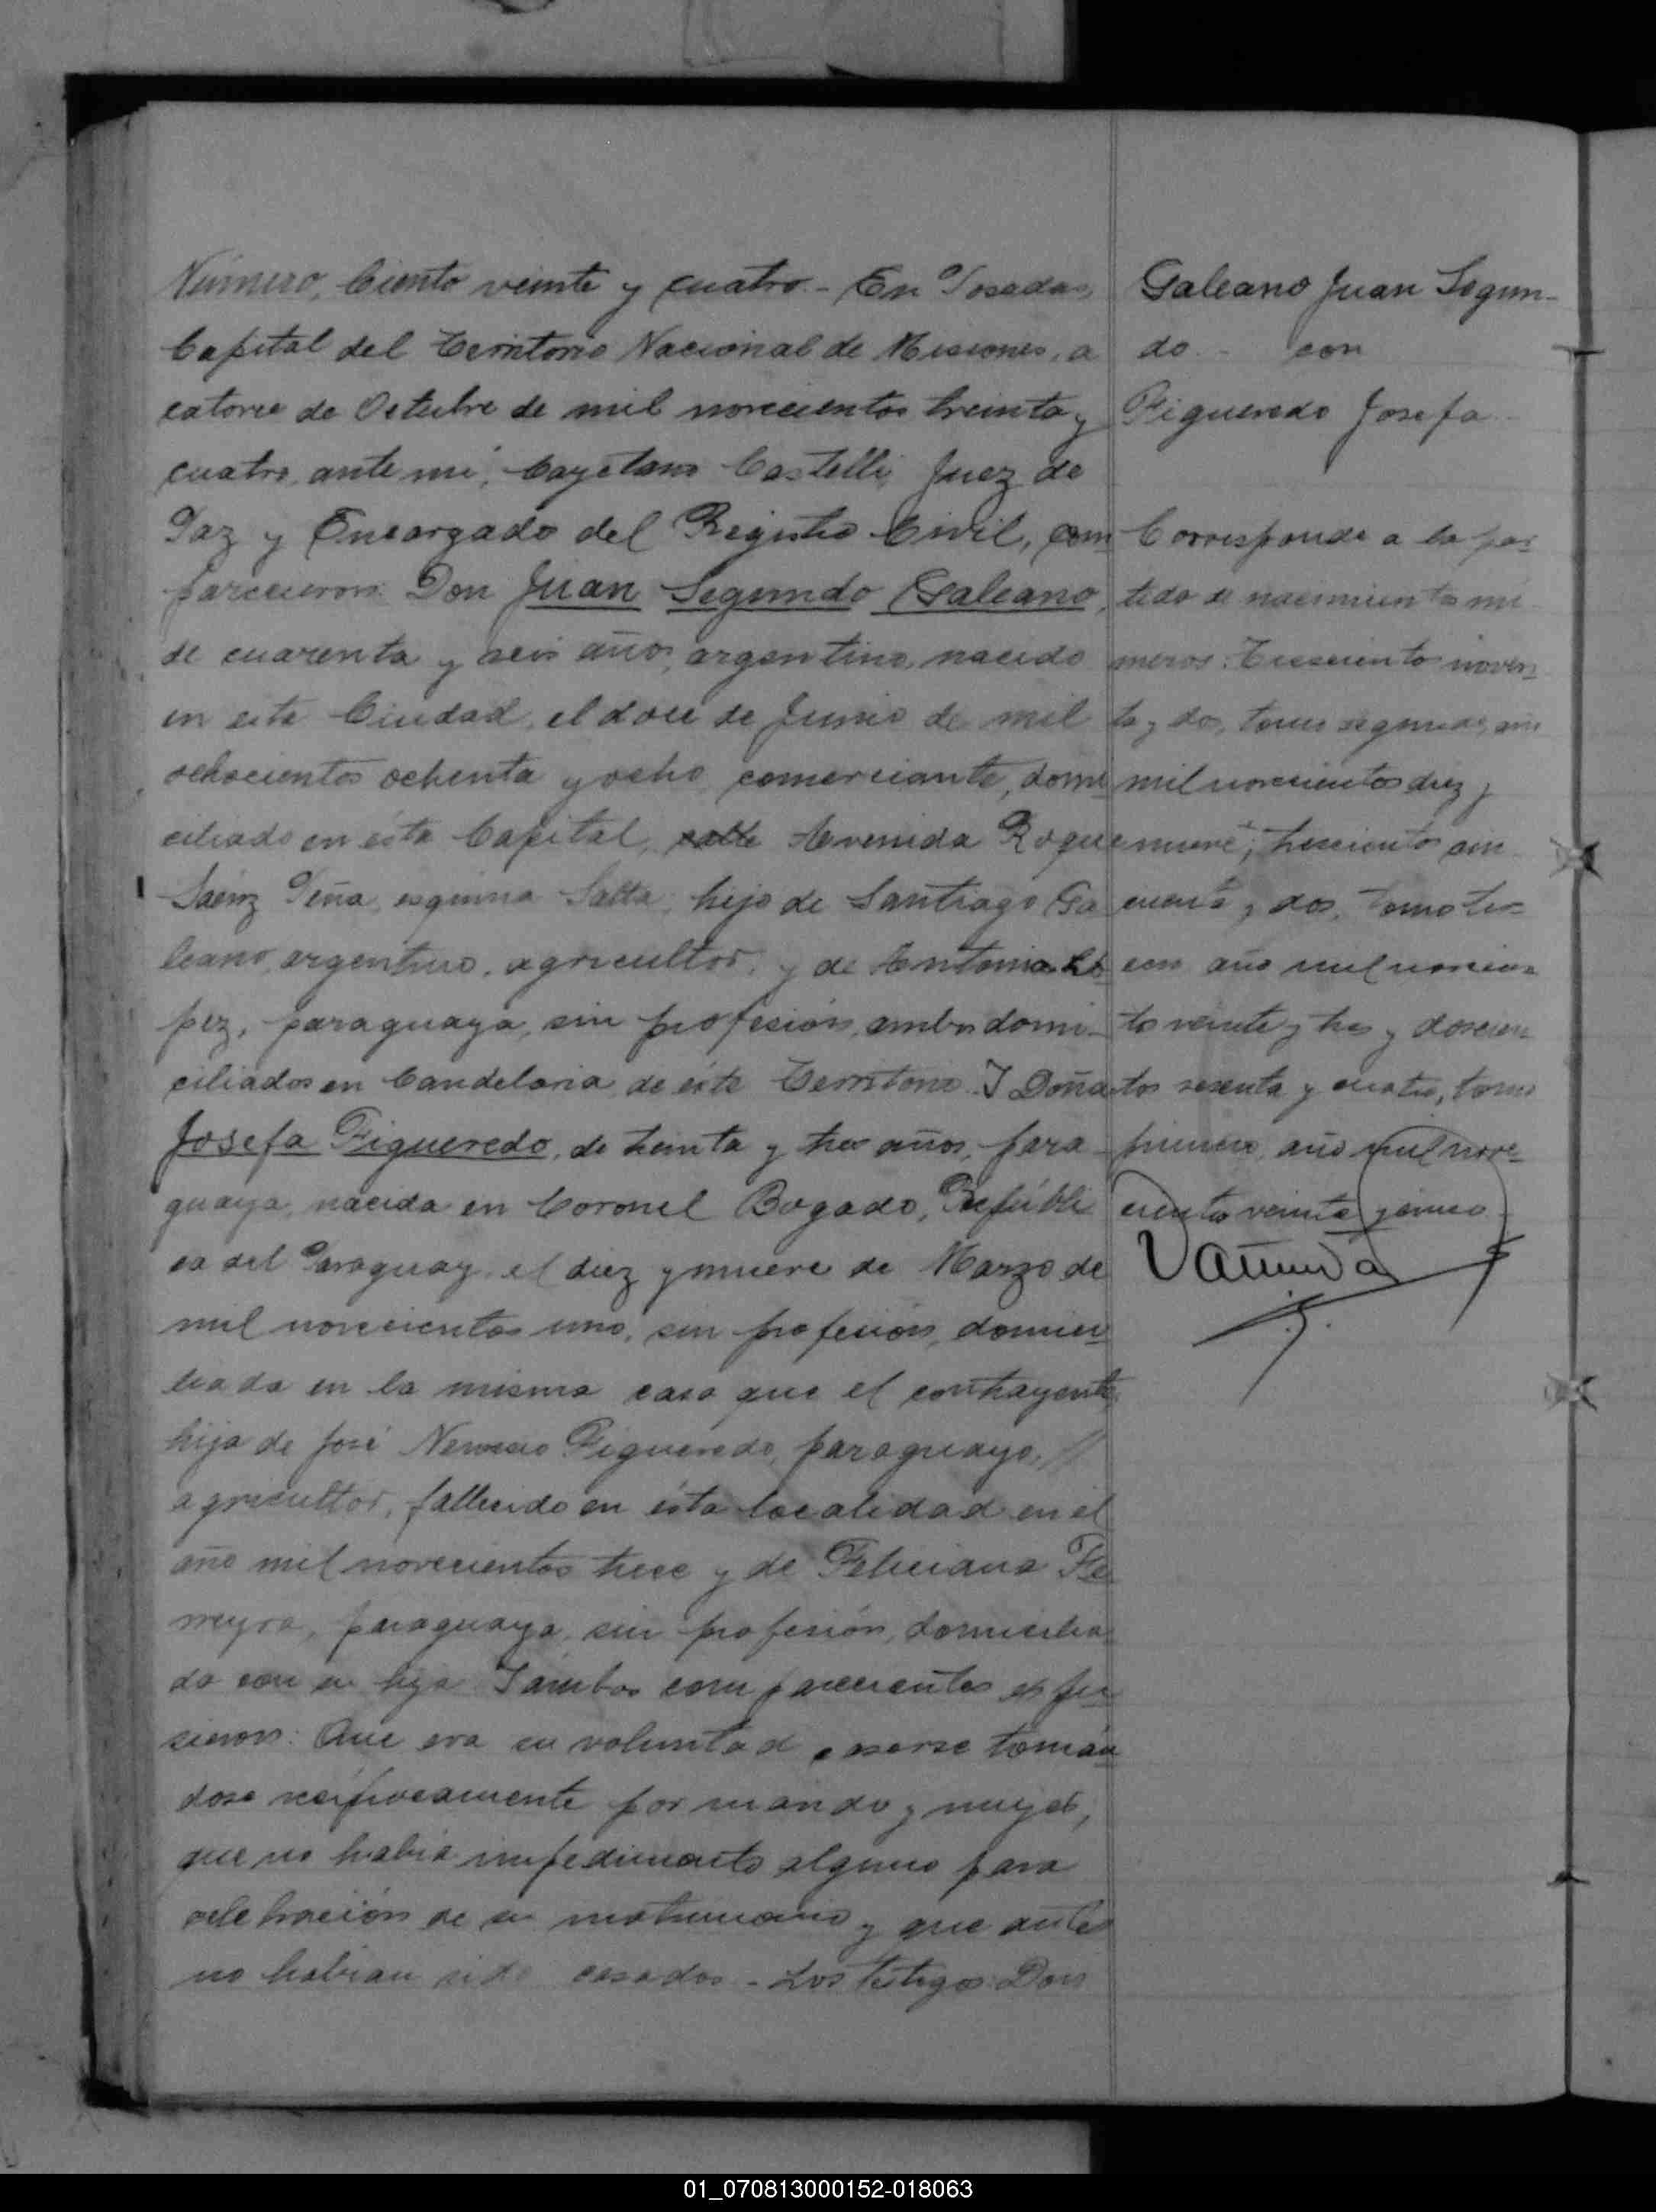 Número, Ciento veinte y cuatro.- En Posadas,
Capital del Territorio Nacional de Misiones, a
catorce de Octubre de mil novecientos treinta y
cuatro, ante mi, Cayetano Castelli, Juez de
Paz y Encargado del Registro Civil, com
parecieron: Don Juan Segundo Galeano,
de cuarenta y seis años, argentino, nacido
en esta Ciudad, el doce de Junio de mil
ochocientos ochenta y ocho, comerciante, domi
ciliado en ésta Capital, calle Avenida Roque
Saénz Peña esquina Salta, hijo de Santiago Ga
leano, argentino, agricultor, y de Antonia Ló
pez, paraguaya, sin profesión, ambos domi-
ciliados en Candelaria de éste Territorio. I Doña
Josefa Figueredo, de treinta y tres años, para-
guaya, nacida en Coronel Bogado, Repúbli
ca del Paraguay, el diez y nueve de Marzo de
mil novecientos uno, sin profesión, domici
liada en la misma casa que el contrayente,
hija de José Nemesio Figueredo, paraguayo, //
agricultor, fallecido en ésta localidad en el
año mil novecientos trece y de Feliciana Fe
rreyra, paraguaya, sin profesión, domicilia
da con su hija. I ámbos comparecientes expu
sieron: Que era su voluntad casarse tomán
dose recíprocamente por marido y mujer,
que no había impedimento alguno para
celebración de su matrimonio y que antes
no habían sido casados.- Los testigos: Don
Galeano Juan Segun-
do.- con
Figueredo Josefa.-
Corresponde a la par
tida de nacimiento nú
meros: Trescientos noven
ta y dos, tomo segundo, año
mil novecientos diez y
nueve; trescientos cin
cuenta y dos, tomo ter
cero año mil novecien
to veinte y tres y doscien
tos sesenta y cuatro, tomo
primero, año mil nove-
cientos veinte y cinco.
01_070813000152-018063